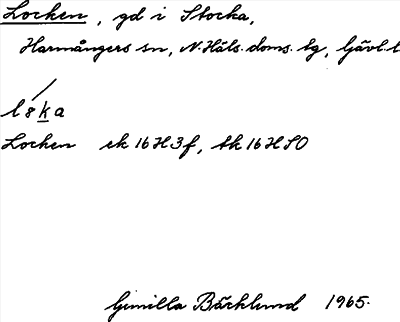 Locken, gd i Stocka,
Harmångers sn, N. Häls. doms. tg, Gävl. l
l8ka
Locken ek 16H3f, tk 16H SO
Gunilla Bäcklund 1965.